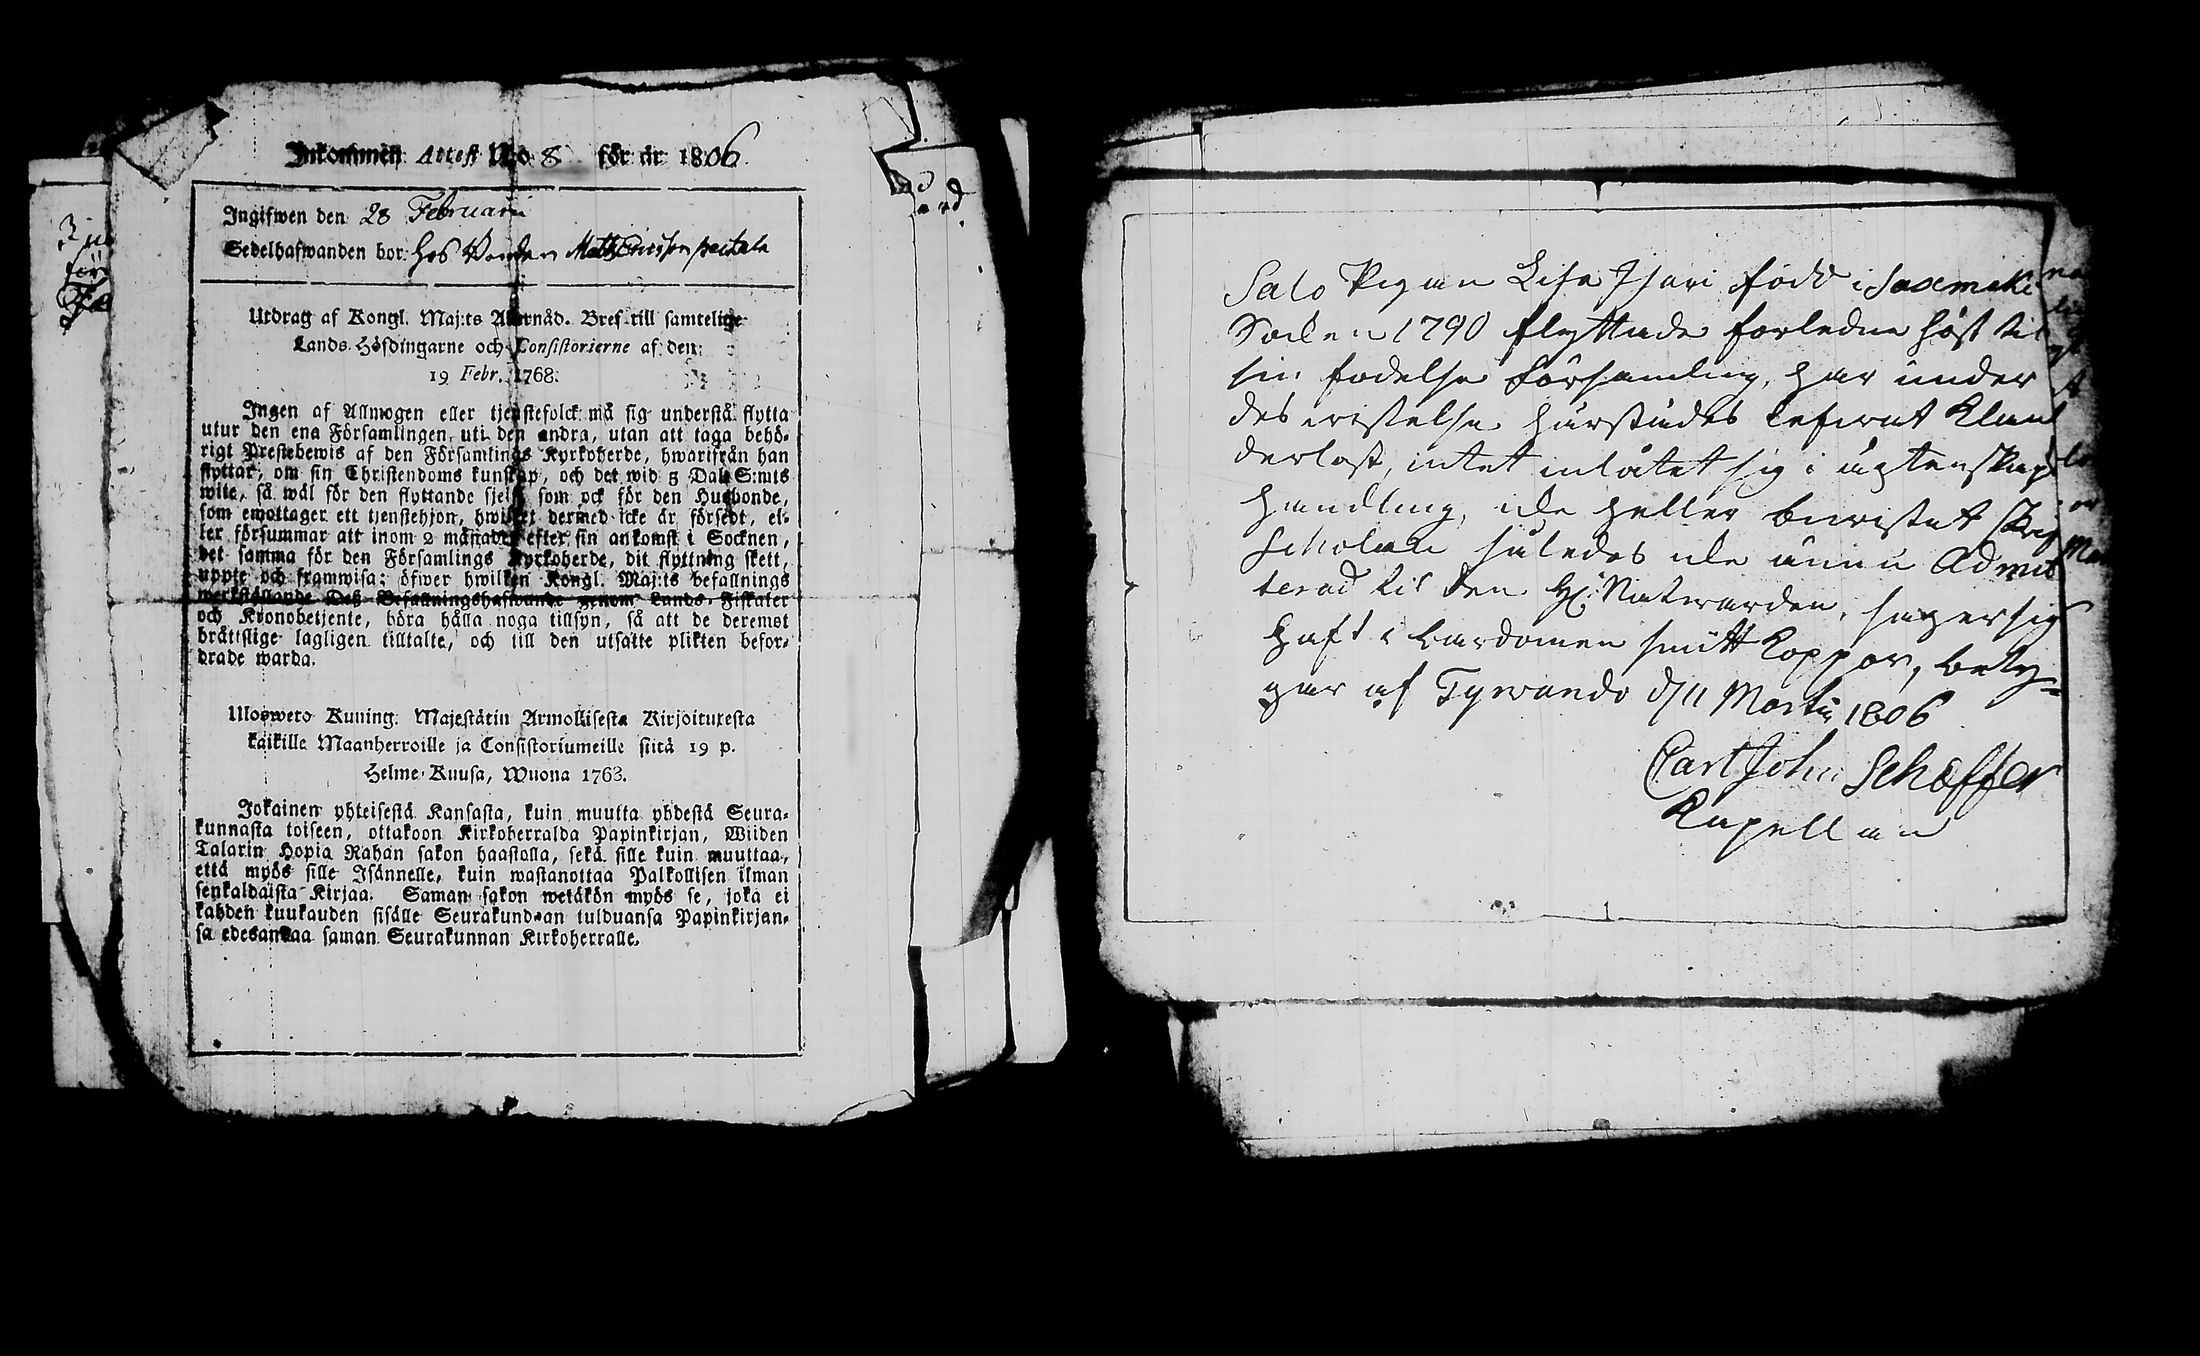 Inkommen Attest N:o 8 för år 1806.
Ingifwen den 28 Februarii
Sedelhafwanden bor hos Matts Ericsson
Utdrag af Kongl. Maj:ts Allernåd. Bref till samtelige
Lands-Höfdingarne och Consistorierne af den
19 Febr. 1768.
Ingen af Allmogen eller tjenstefolck må sig understå flytta
utur den ena Församlingen uti den andra, utan att taga behö-
rigt Prestebewis af den Församlings Kyrkoherde, hwarifrån han
flyttar, om sin Christendoms kunskap, och det wid 5 Dal. S:mts
wite, så wäl för den flyttande sjelf, som ock för den Husbonde,
som emottager ett tjenstehjon, hwilket dermed icke är försedt, el-
ler försummar att inom 2 månader efter sin ankomst i Socknen,
det samma för den Församlings Kyrkoherde, dit flyttning skett,
uppte och framwisa; öfwer hwilken Kongl. Maj:ts befallnings
werkställande Deß Befallningshafwande genom Lands-Fiskaler
och Kronobetjente, böra hålla noga tillsyn, så att de deremot
bråttslige lagligen tilltalte, och till den utsatte plikten befor-
drade warda.
Ulosweto Kuning. Majestätin Armollisesta Kirjoituxesta
kaikille Maanherroille ja Consistoriumeille siitä 19 p.
Helme-Kuusa, Wuona 1768.
Jokainen yhteisestä Kansasta, kuin muutta yhdestä Seura-
kunnasta toiseen, ottakoon Kirkoherralda Papinkirjan, Wiiden
Talarin Hopia Rahan sakon haastolla, sekä sille kuin muuttaa,
että myös sille Isännelle, kuin wastanottaa Palkollisen ilman
senkaldaista Kirjaa. Saman sakon wetäkön myös se, joka ei
kahden kuukauden sisälle Seurakundaan tulduansa Papinkirjan-
sa edesantaa saman Seurakunnan Kirkoherralle.
Salo Pigan Lisa Isari född i Saxmäki
Socken 1790 flyttade förledne höst til
sin födelse församling, har under
des vistelse härstädes lefwat Klan
derlöst, intet inlåtet sig i ägtenskaps
handling, icke heller biwistat Skrif
Scholan således icke ännu Admit
terad til den H: Nattwarden, säger sig
haft i barndomen smitt Koppor, bety-
gar af Tyrwändö d 11 Martii 1806
Carl John Schæffer
Kapellan